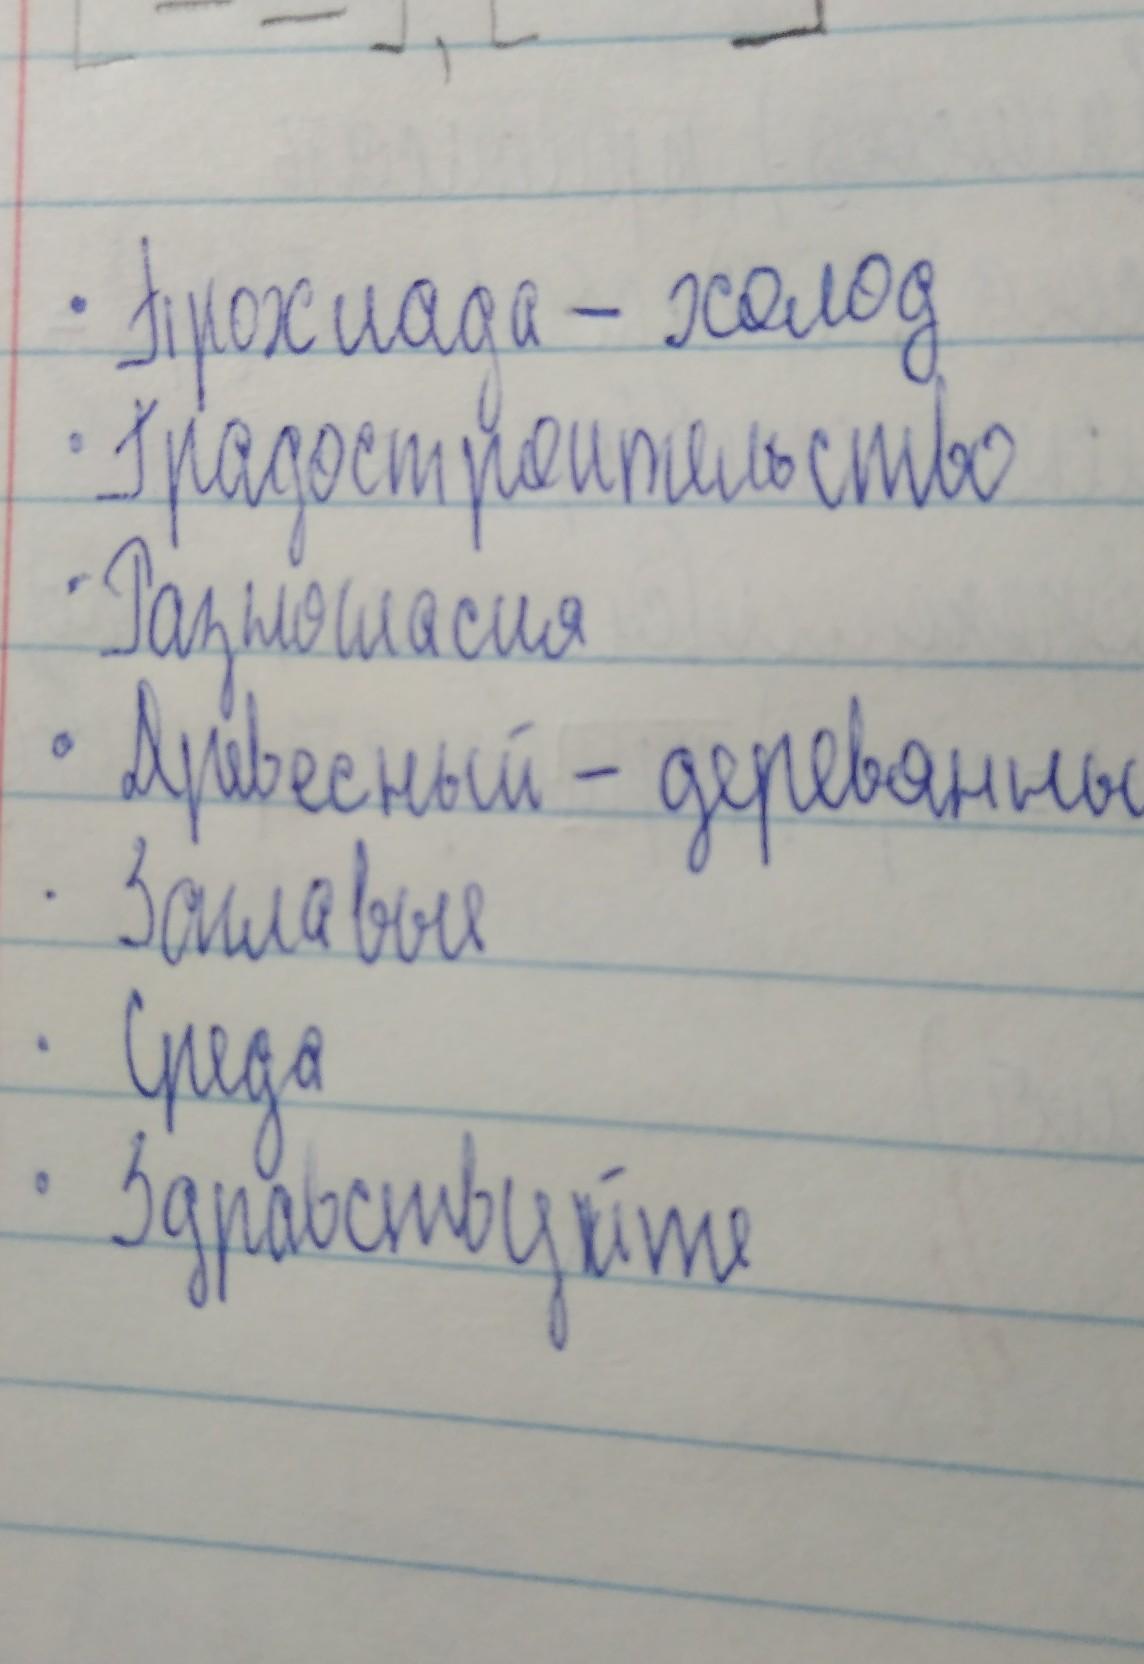 · Прохлада – холод
· Градостроительство
· Разногласия
· Древесный – деревянны
· Заглавия
· Среда
· Здравствуйте